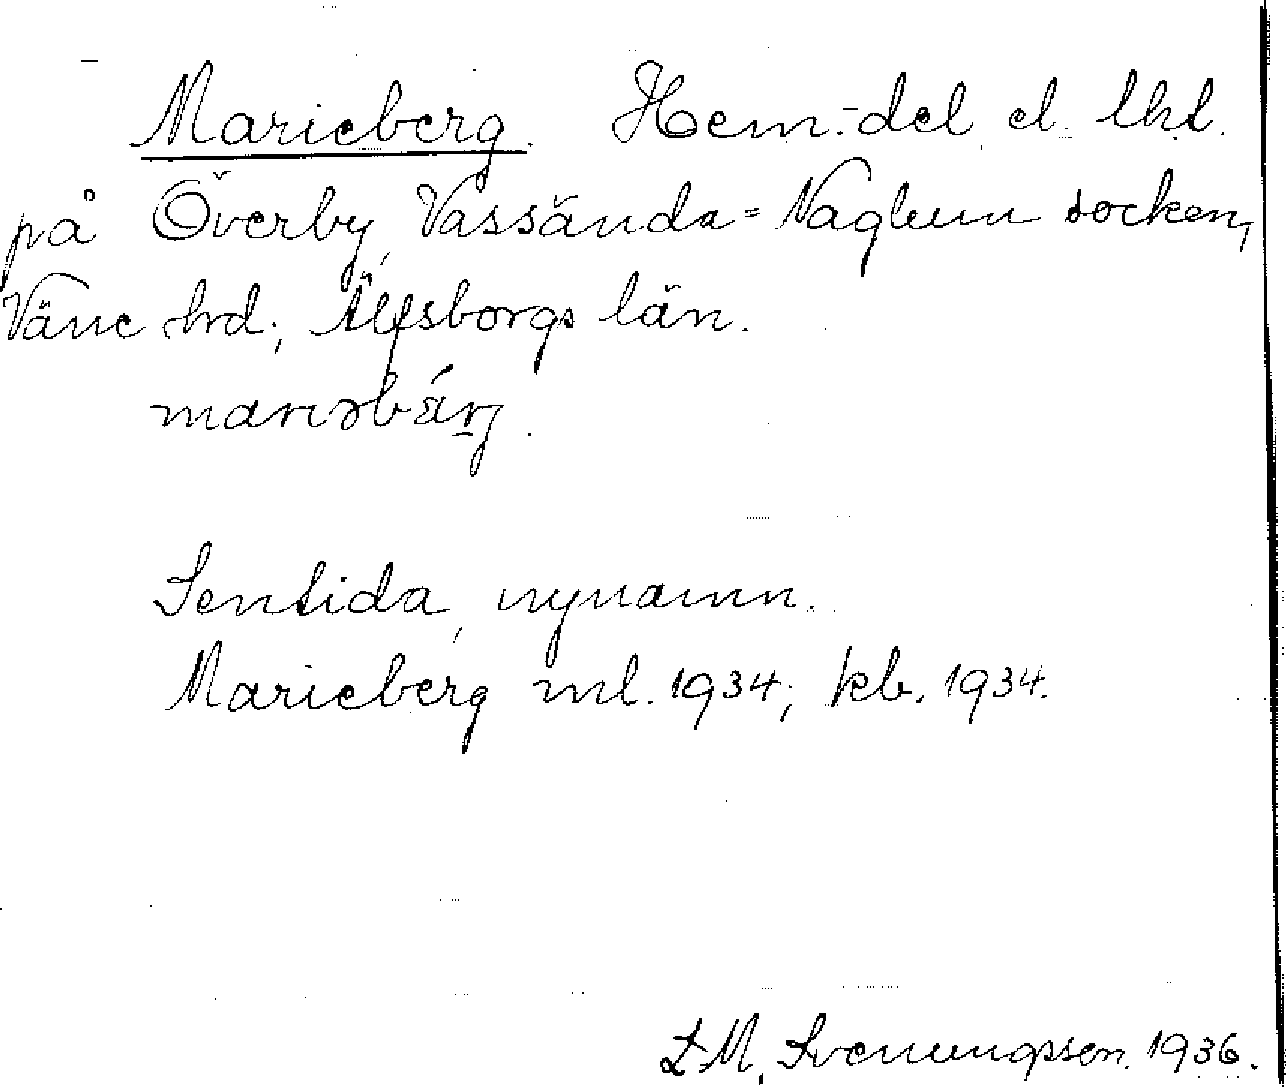 Marieberg. Hem.-del el. lht.
på Överby, Vassända-Naglum socken,
Väne hrd; Älfsborgs län.
marıəbærj.
Sentida, nynamn.
Marieberg ml. 1934; kb. 1934.
L M. Svenungsson. 1936.